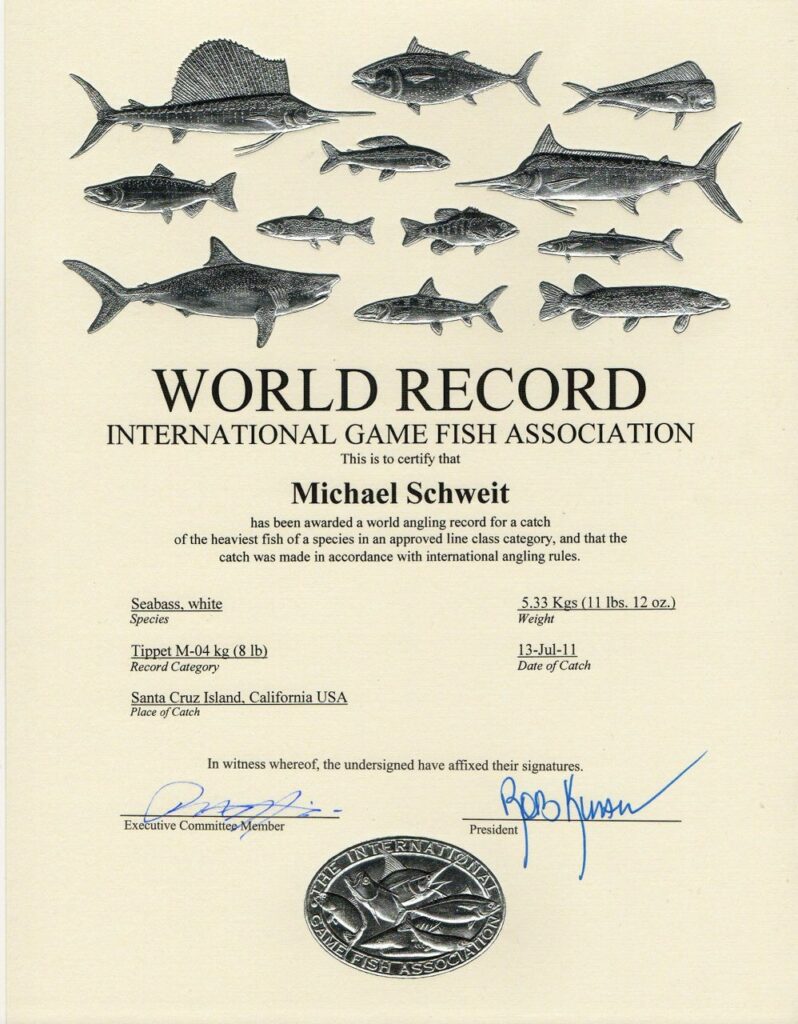 WORLD RECORD
INTERNATIONAL GAME FISH ASSOCIATION
This is to certify that
Michael Schweit
has been awarded a world angling record for a catch
of the heaviest fish of a species in an approved line class category, and that the
catch was made in accordance with international angling rules.
Seabass, white
Species
5.33 Kgs (11 lbs. 12 oz.)
Weight
Tippet M-04 kg (8 lb)
Record Category
13-Jul-11
Date of Catch
Santa Cruz Island, California USA
Place of Catch
In witness whereof, the undersigned have affixed their signatures.
Executive Committee Member
Rob
President
THE INTERNATIONAL
GAME FISH ASSOCIATION